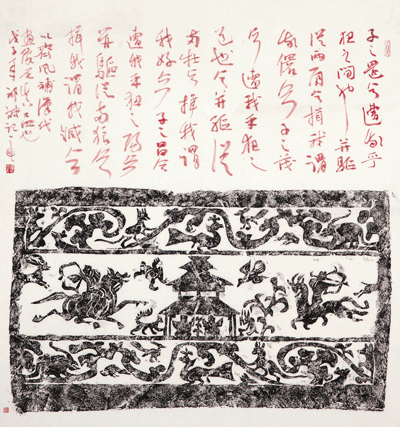 子之還兮遭我乎
峱之间兮并驅
從兩肩兮揖我謂
我儇兮子之茂
兮遭我乎峱之
道兮并驅從
兩牡兮揖我謂
我好兮子之昌兮
遭我乎峱之陽兮
并驅從兩狼兮
揖我謂我臧兮
以齊風補漢代
畫像
戊子